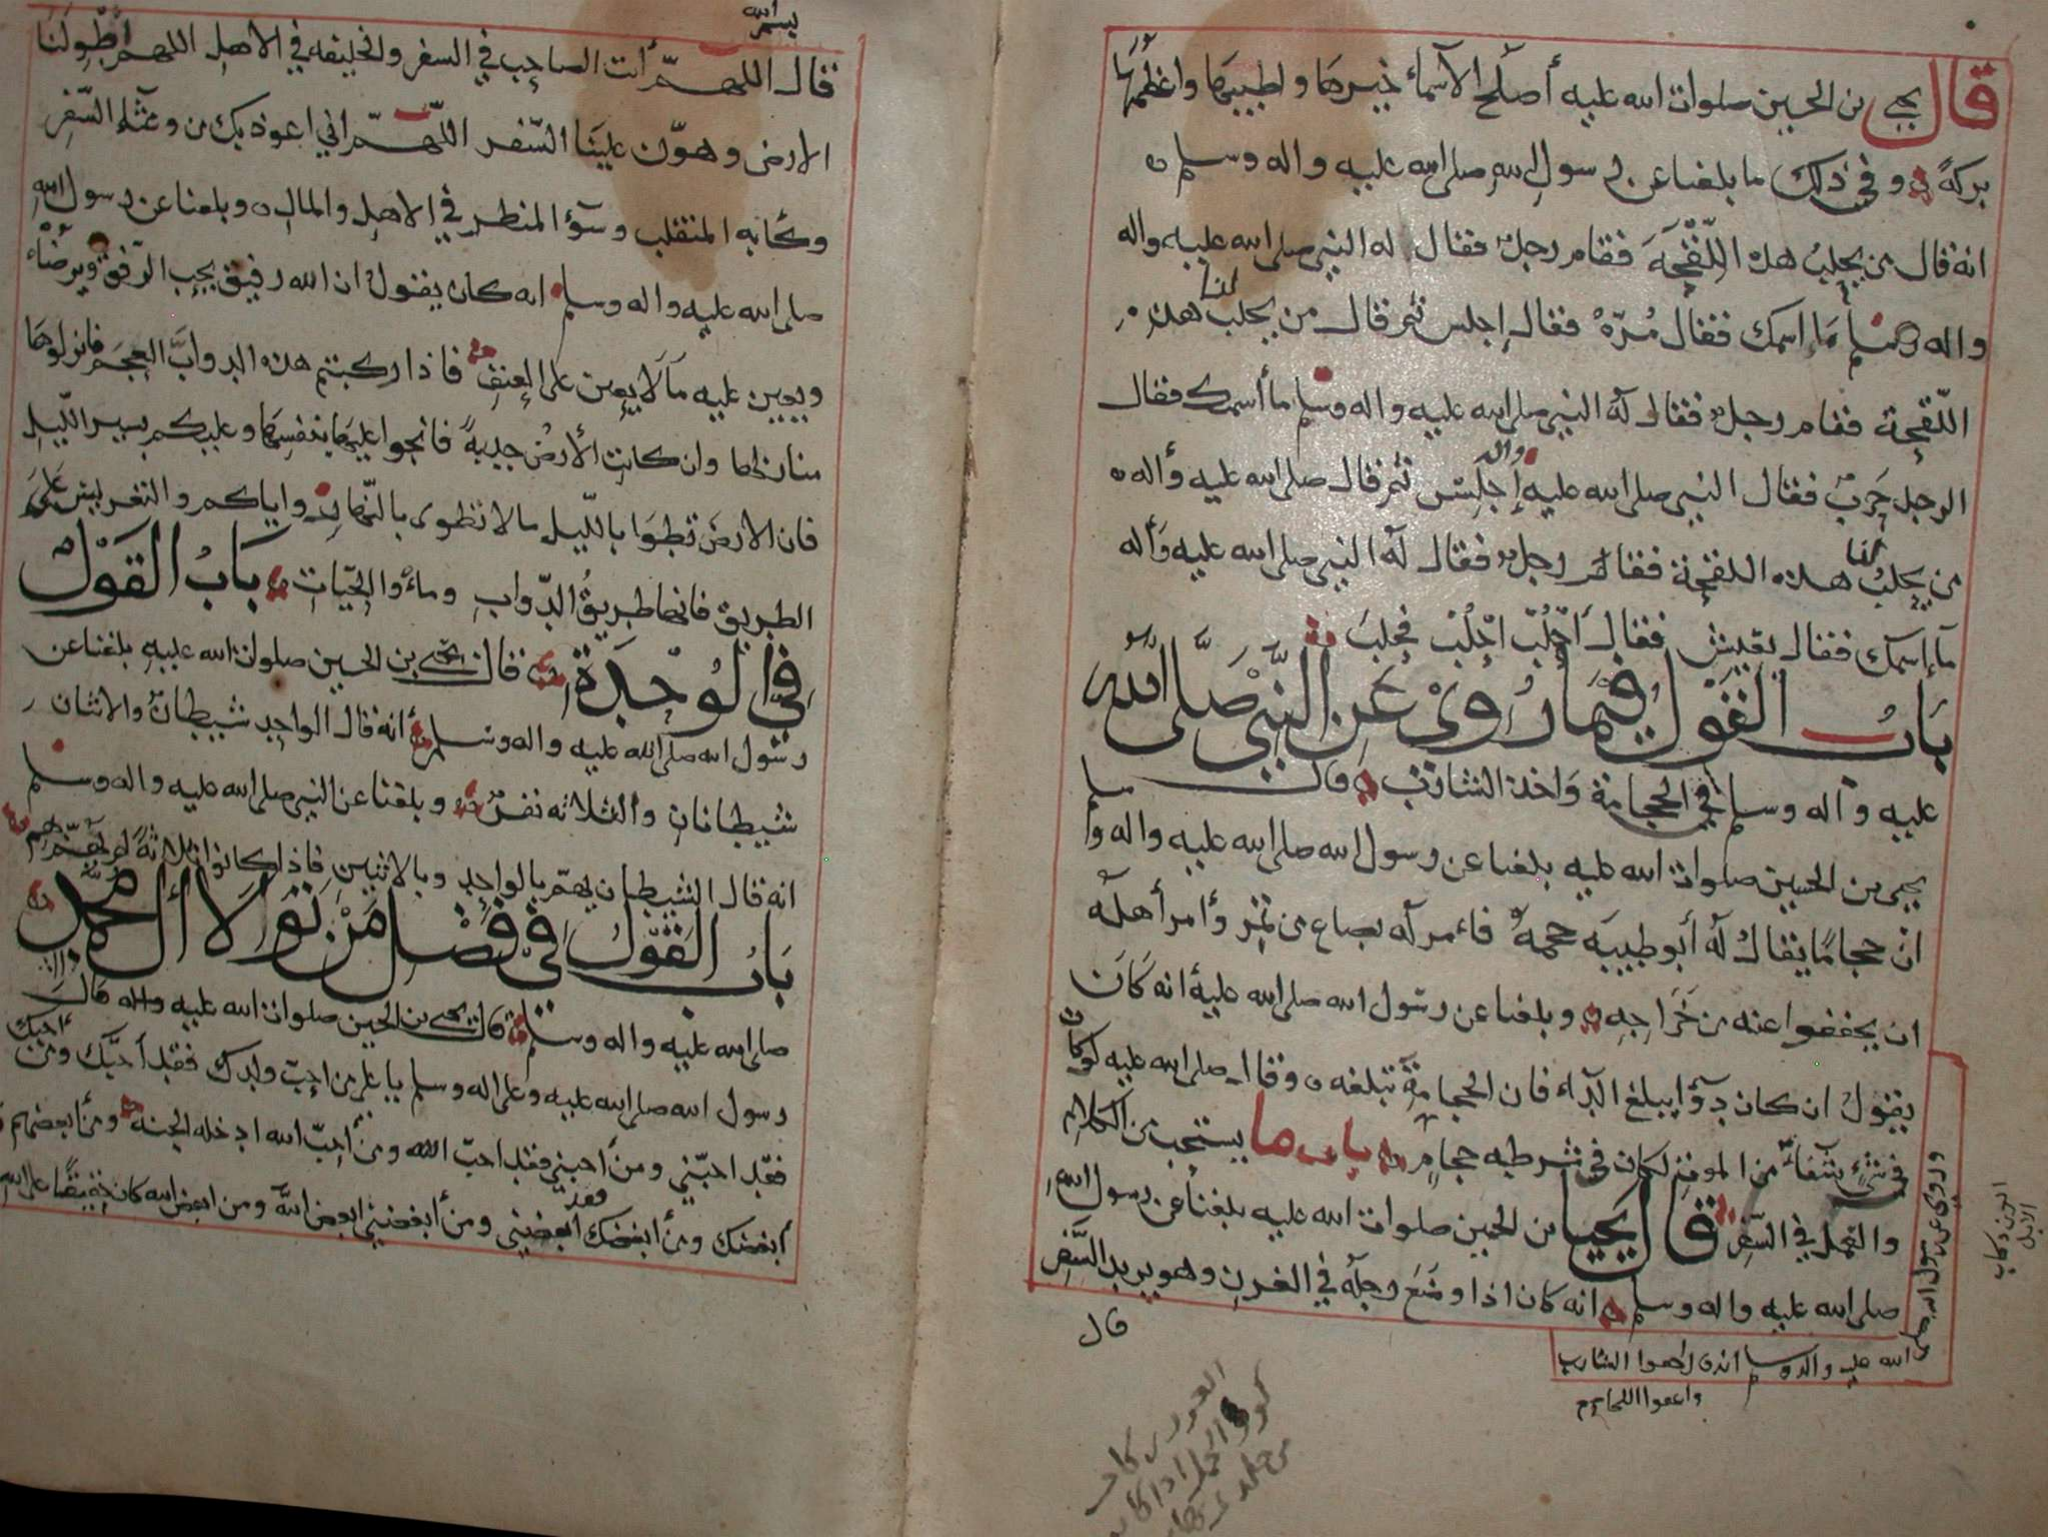 قال يحيى بن الحسين صلوات الله عليه أصلح الأسماء خيرها واطيبها واعظمها
بركةً وفي ذلك ما بلغنا عن رسول الله صلى الله عليه واله وسلم
انه قال من يحلب هذه اللقحة فقام رجل فقال له النبي صلى الله عليه واله
واله وسلم ما اسمك فقال مُرّة فقال إجلس ثم قال من يحلب لنا هذه
اللقحة فقام رجل فقال له النبي صلى الله عليه واله وسلم ما أسمك فقال
الرجل حَرب فقال النبي صلى الله عليه واله إجلس ثم قال صلى الله عليه وأله
من يحلب لنا هذه اللقحة فقام رجل فقال له النبي صلى الله عليه وأله
ما إسمك فقال يعيش فقال أحلب احلب فحلب
باب القول فيما روي عن النبي صلى الله
عليه وآله وسلم في الحجامة واخذ الشارب قال
يحيى بن الحسين صلوات الله عليه بلغنا عن رسول الله صلى الله عليه واله وسلم
ان حجامًا يقال له أبو طيبه حجمه فاءمر له بصاع من تمر وأمر أهله
ان يخففوا عنه من خراجه وبلغنا عن رسول الله صلى الله عليه أنه كان
يقول ان كان دوآ يبلغ الدآء فان الحجامة تبلغه وقال صلى الله عليه لو كان
في شيء شفاء من الموت لكان في شرطه حجام باب ما يستحب من الكلام
والعمل في السفر قال يحيا بن الحسين صلوات الله عليه بلغنا عن رسول الله
صلى الله عليه واله وسلم انه كان اذا وضع رجله في الغرز وهو يريد السفر
قال
وروي عن رسول الله صلى
الله عليه واله وسلم انه قال احفوا الشارب
واعفوا اللحا
بسم الله
قال اللهم أنت الصاحب في السفر والخليفه في الاهل اللهم أطو لنا
الارض وهوّن علينا السّفر اللّهمّ اني اعوذ بك من وعثاء السّفر
وكآبه المنقلب وسوء المنظر في الاهل والمال وبلغنا عن رسول الله
صلى الله عليه واله وسلم انه كان يقول ان الله رفيق يحب الرّفق ويرضاه
ويعين عليه ما لا يعين على العنف فاذا ركبتم هذه الدوابّ العجم فانزلوها
منازلها وان كانت الأرض جدبةً فانجوا عليها بنفسها وعليكم بسير اللّيل
فان الارض تطوا باللّيل ما لا تطوى بالنّهار واياكم والتعريس على
الطريق فانها طريق الدّواب وماءوا الحيّات باب القول
في الوحدة قال يحيى بن الحسين صلوات الله عليه بلغنا عن
رسول الله صلى الله عليه واله وسلم أنه قال الواحد شيطان والاثنان
شيطانان والثلاثه نفر وبلغنا عن النبي صلى الله عليه واله وسلم
انه قال الشيطان يهم بالواحد وبالاثنين فاذا كانوا ثلاثةً لم يهمّ بهم
باب القول في فضل من تولا أل محمد
صلى الله عليه واله وسلم قال يحيى بن الحسين صلوات الله عليه واله قال
رسول الله صلى الله عليه وعلى اله وسلم يا علي من احبّ ولدك فقد أحبّك ومن احبك
فقد احبّني ومن أحبني فقد احبّ الله ومن أحبّ الله ادخله الجنة ومن أبغضهم فقد
أبغضك ومن أبغضك فقد أبغضني ومن أبغضني أبغض الله ومن ابغض الله كان حقيقًا على الله